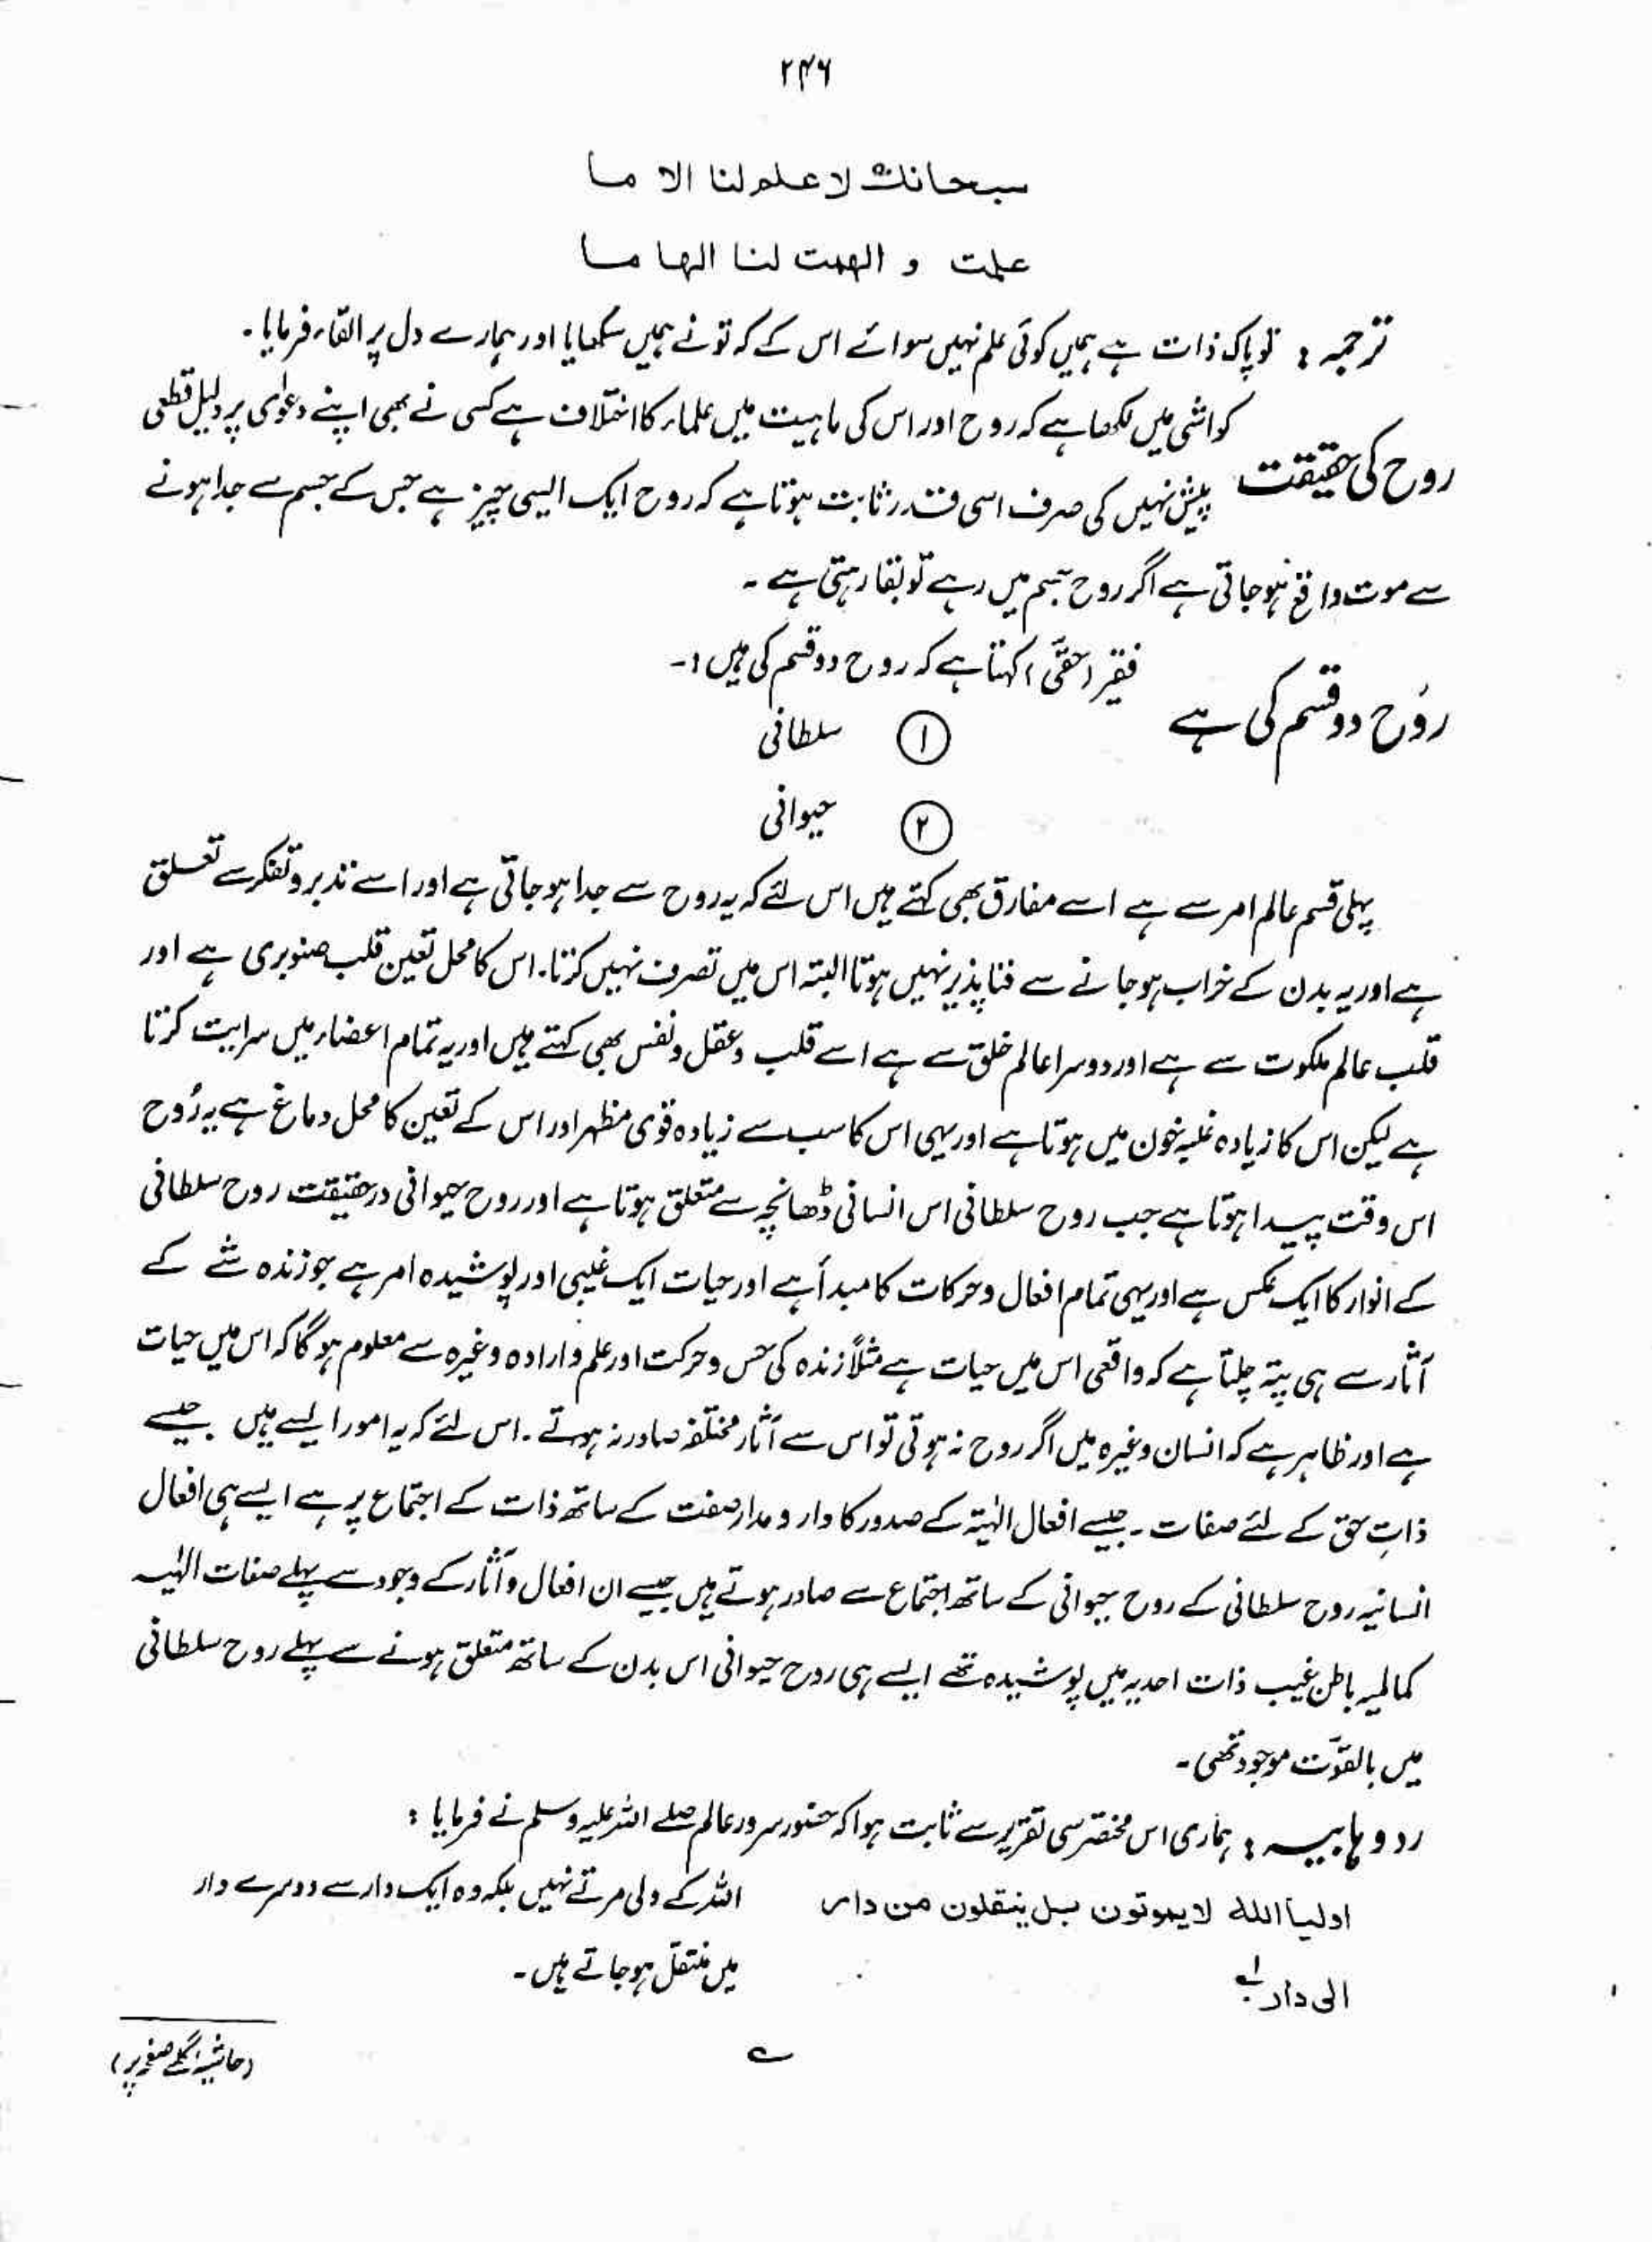 ۲۴۶
سبحانک لا علم لنا الا ما
علمت و الهمت لنا الهاما
ترجمہ : تو پاک ذات ہے ہمیں کوئی علم نہیں سوائے اس کے کہ تو نے ہمیں سکھایا اور ہمارے دل پر القاء فرمایا۔
روح کی حقیقت
کواشی میں لکھا ہے کہ روح اور اس کی ماہیت میں علماء کا اختلاف ہے کسی نے بھی اپنے دعوٰی پر دلیل قطعی
پیش نہیں کی صرف اسی قدر ثابت ہوتا ہے کہ روح ایک ایسی چیز ہے جس کے جسم سے جدا ہونے
سے موت واقع ہو جاتی ہے اگر روح جسم میں رہے تو بقا رہتی ہے ۔
روُح دو قسم کی ہے
فقیر (حقّی) کہتا ہے کہ روح دو قسم کی ہیں :۔
① سلطانی
② حیوانی
پہلی قسم عالم امر سے ہے اسے مفارق بھی کہتے ہیں اس لئے کہ یہ روح سے جدا ہو جاتی ہے اور اسے تدبر و تفکر سے تعلق
ہے اور یہ بدن کے خراب ہو جانے سے فنا پذیر نہیں ہوتا البتہ اس میں تصرف نہیں کرتا۔ اس کا محل تعین قلب صنوبری ہے اور
قلب عالم ملکوت سے ہے اور دوسرا عالم خلق سے ہے اسے قلب و عقل و نفس بھی کہتے ہیں اور یہ تمام اعضاء میں سرایت کرتا
ہے لیکن اس کا زیادہ غلبہ خون میں ہوتا ہے اور یہی اس کا سب سے زیادہ قوی مظہر اور اس کے تعین کا محل دماغ ہے یہ رُوح
اس وقت پیدا ہوتا ہے جب روح سلطانی اس انسانی ڈھانچہ سے متعلق ہوتا ہے اور روح حیوانی درحقیقت روح سلطانی
کے انوار کا ایک عکس ہے اور یہی تمام افعال و حرکات کا مبدأ ہے اور حیات ایک غیبی اور پوشیدہ امر ہے جو زندہ شے کے
آثار سے ہی پتہ چلتا ہے کہ واقعی اس میں حیات ہے مثلاً زندہ کی حس و حرکت اور علم و ارادہ وغیرہ سے معلوم ہو گا کہ اس میں حیات
ہے اور ظاہر ہے کہ انسان وغیرہ میں اگر روح نہ ہوتی تو اس سے آثار مختلفہ صادر نہ ہوتے ۔ اس لئے کہ یہ امور ایسے ہیں جیسے
ذاتِ حق کے لئے صفات ۔ جیسے افعال الٰہیّہ کے صدور کا دار و مدار صفت کے ساتھ ذات کے اجتماع پر ہے ایسے ہی افعال
انسانیہ روح سلطانی کے روح حیوانی کے ساتھ اجتماع سے صادر ہوتے ہیں جیسے ان افعال و آثار کے وجود سے پہلے صفات الٰہیہ
کمالیہ باطن غیب ذات احدیہ میں پوشیدہ تھے ایسے ہی روح حیوانی اس بدن کے ساتھ متعلق ہونے سے پہلے روح سلطانی
میں بالقوّت موجود تھی ۔
رد وہابیہ : ہماری اس مختصر سی تقریر سے ثابت ہوا کہ حضور سرور عالم صلے اللہ علیہ وسلم نے فرمایا :
اولیا الله لا یموتون بل ینتقلون من دار
الی دار
اللہ کے ولی مرتے نہیں بلکہ وہ ایک دار سے دوسرے دار
میں منتقل ہو جاتے ہیں ۔
(حاشیہ اگلے صفحہ پر)